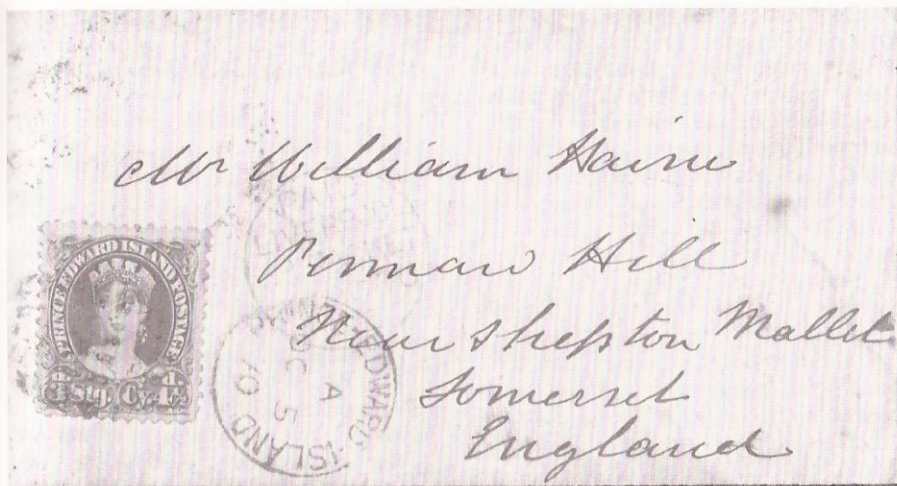 Mr William Haine
Pennard Hill
Near Shepton Mallet
Somerset
England
PRINCE EDWARD ISLAND POSTAGE
3d. Stg. Cy. 4½d.
PAID
LIVERPOOL
PRINCE EDWARD ISLAND
A
OC 5
70